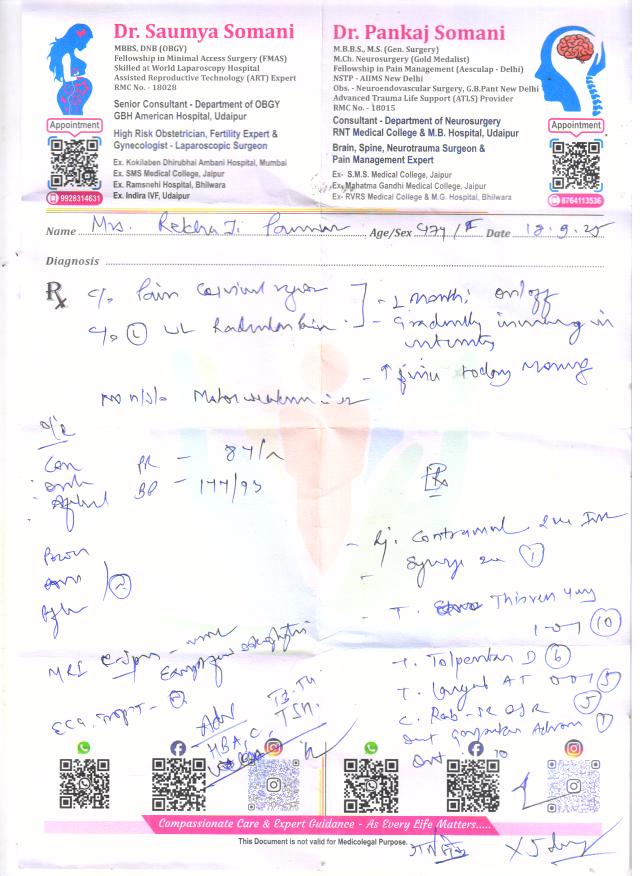 Dr. Saumya Somani
MBBS, DNB (OBGY)
Fellowship in Minimal Access Surgery (FMAS)
Skilled at World Laparoscopy Hospital
Assisted Reproductive Technology (ART) Expert
RMC No. - 18028
Senior Consultant - Department of OBGY
GBH American Hospital, Udaipur
High Risk Obstetrician, Fertility Expert &
Gynecologist - Laparoscopic Surgeon
Ex. Kokilaben Dhirubhai Ambani Hospital, Mumbai
Ex. SMS Medical College, Jaipur
Ex. Ramsnehi Hospital, Bhilwara
Ex. Indira IVF, Udaipur
Appointment
9928314631
Dr. Pankaj Somani
M.B.B.S., M.S. (Gen. Surgery)
M.Ch. Neurosurgery (Gold Medalist)
Fellowship in Pain Management (Aesculap - Delhi)
NSTP - AIIMS New Delhi
Obs. - Neuroendovascular Surgery, G.B.Pant New Delhi
Advanced Trauma Life Support (ATLS) Provider
RMC No. - 18015
Consultant - Department of Neurosurgery
RNT Medical College & M.B. Hospital, Udaipur
Brain, Spine, Neurotrauma Surgeon &
Pain Management Expert
Ex- S.M.S. Medical College, Jaipur
Ex- Mahatma Gandhi Medical College, Jaipur
Ex- RVRS Medical College & M.G. Hospital, Bhilwara
Appointment
8764113536
Name Mrs. Rekha Ji Age/Sex 47y/F Date 18.9.25
Diagnosis
Rx c/o Pain cervical region - 1 month on/off
c/o (L) UL Radicular Pain - Gradually in
intensity
- ↑ today morning
no h/o Motor weakness
o/e
PR - 87/
BP - 177/93
Rx
- Inj. Contramal 2cc Im
Syringe 2cc (1)
Power
- T. 4mg
1-0-1 (10)
MRI
T. D (6)
ECG. TropT -
Adv
T3, T4
TSH.
HBA1C,
T. AT 0 0 1 (5)
C. Rab-SR (5)
10
Compassionate Care & Expert Guidance - As Every Life Matters.....
This Document is not valid for Medicolegal Purpose.
x 5 day